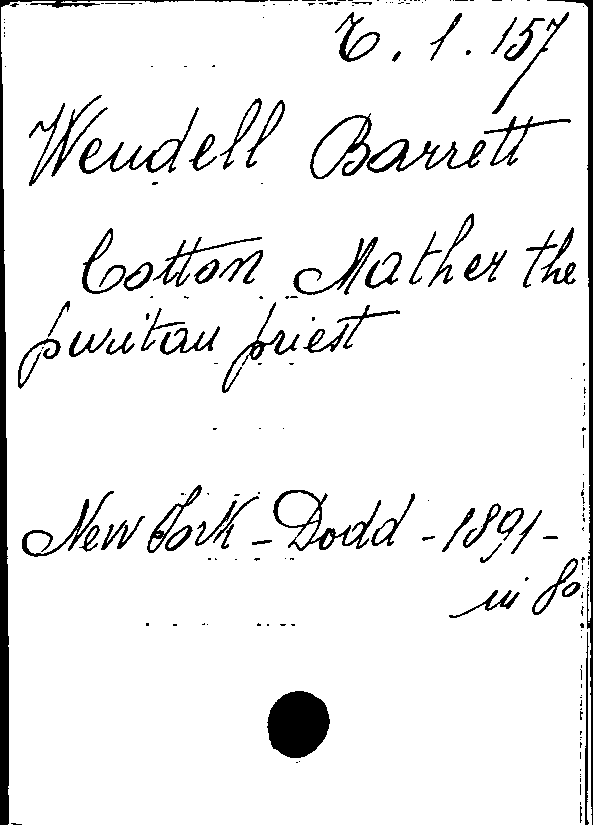 C. 1. 157
Wendell Barrett
Cotton Mather the
puritan priest
New York - Dodd - 1891 -
in 8o